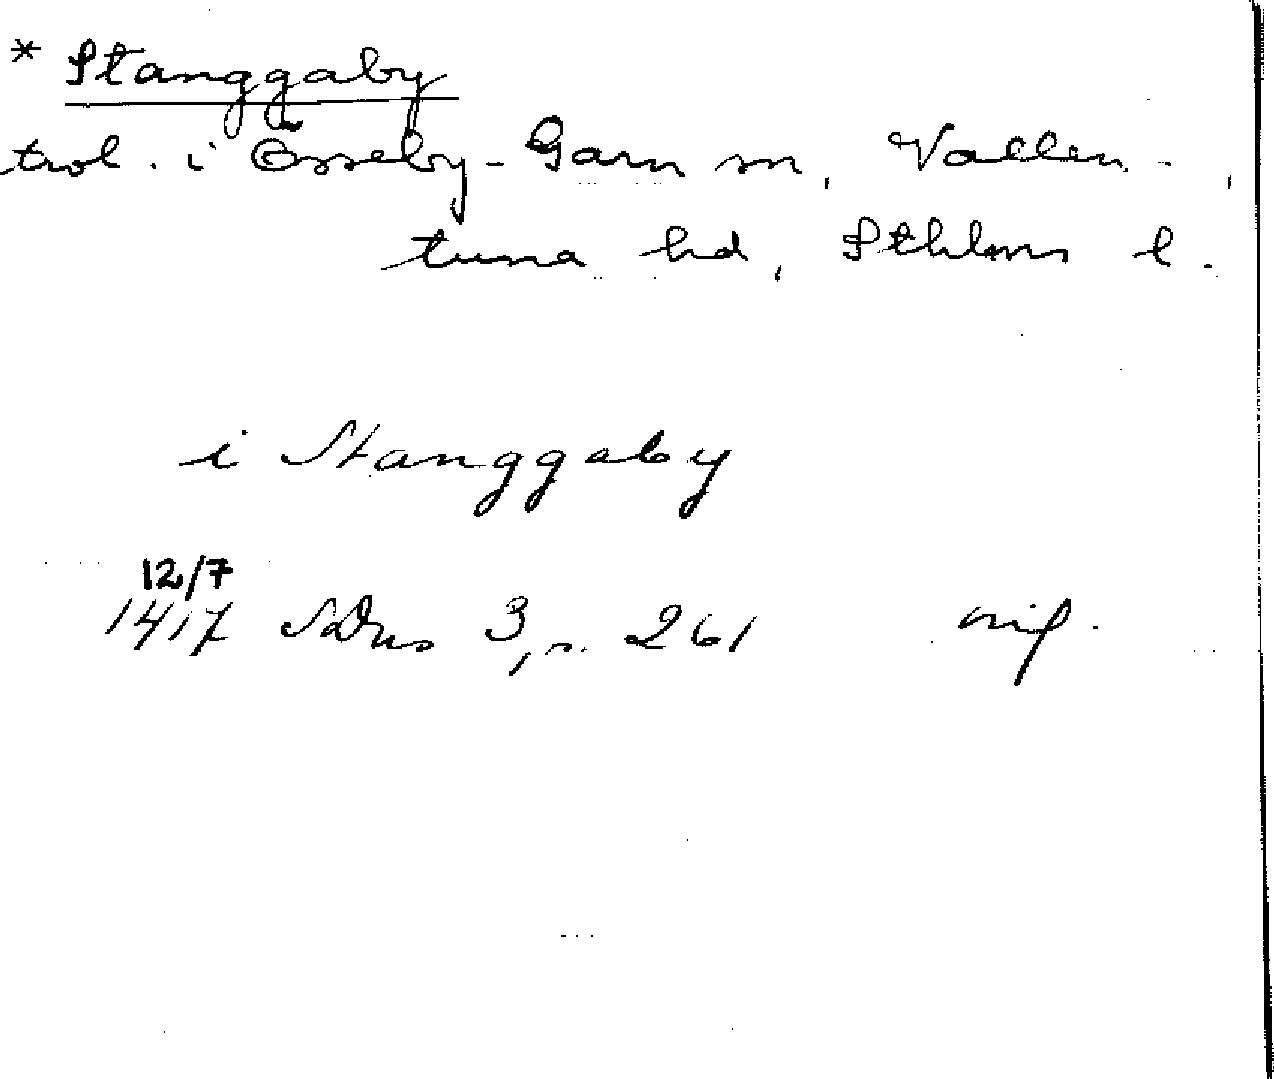 * Stanggaby
trol. i Össeby-Garn sn, Vallen-
tuna hd, Sthlms l.
i Stanggaby
12/7
1417 SDns 3, s. 261 orig.